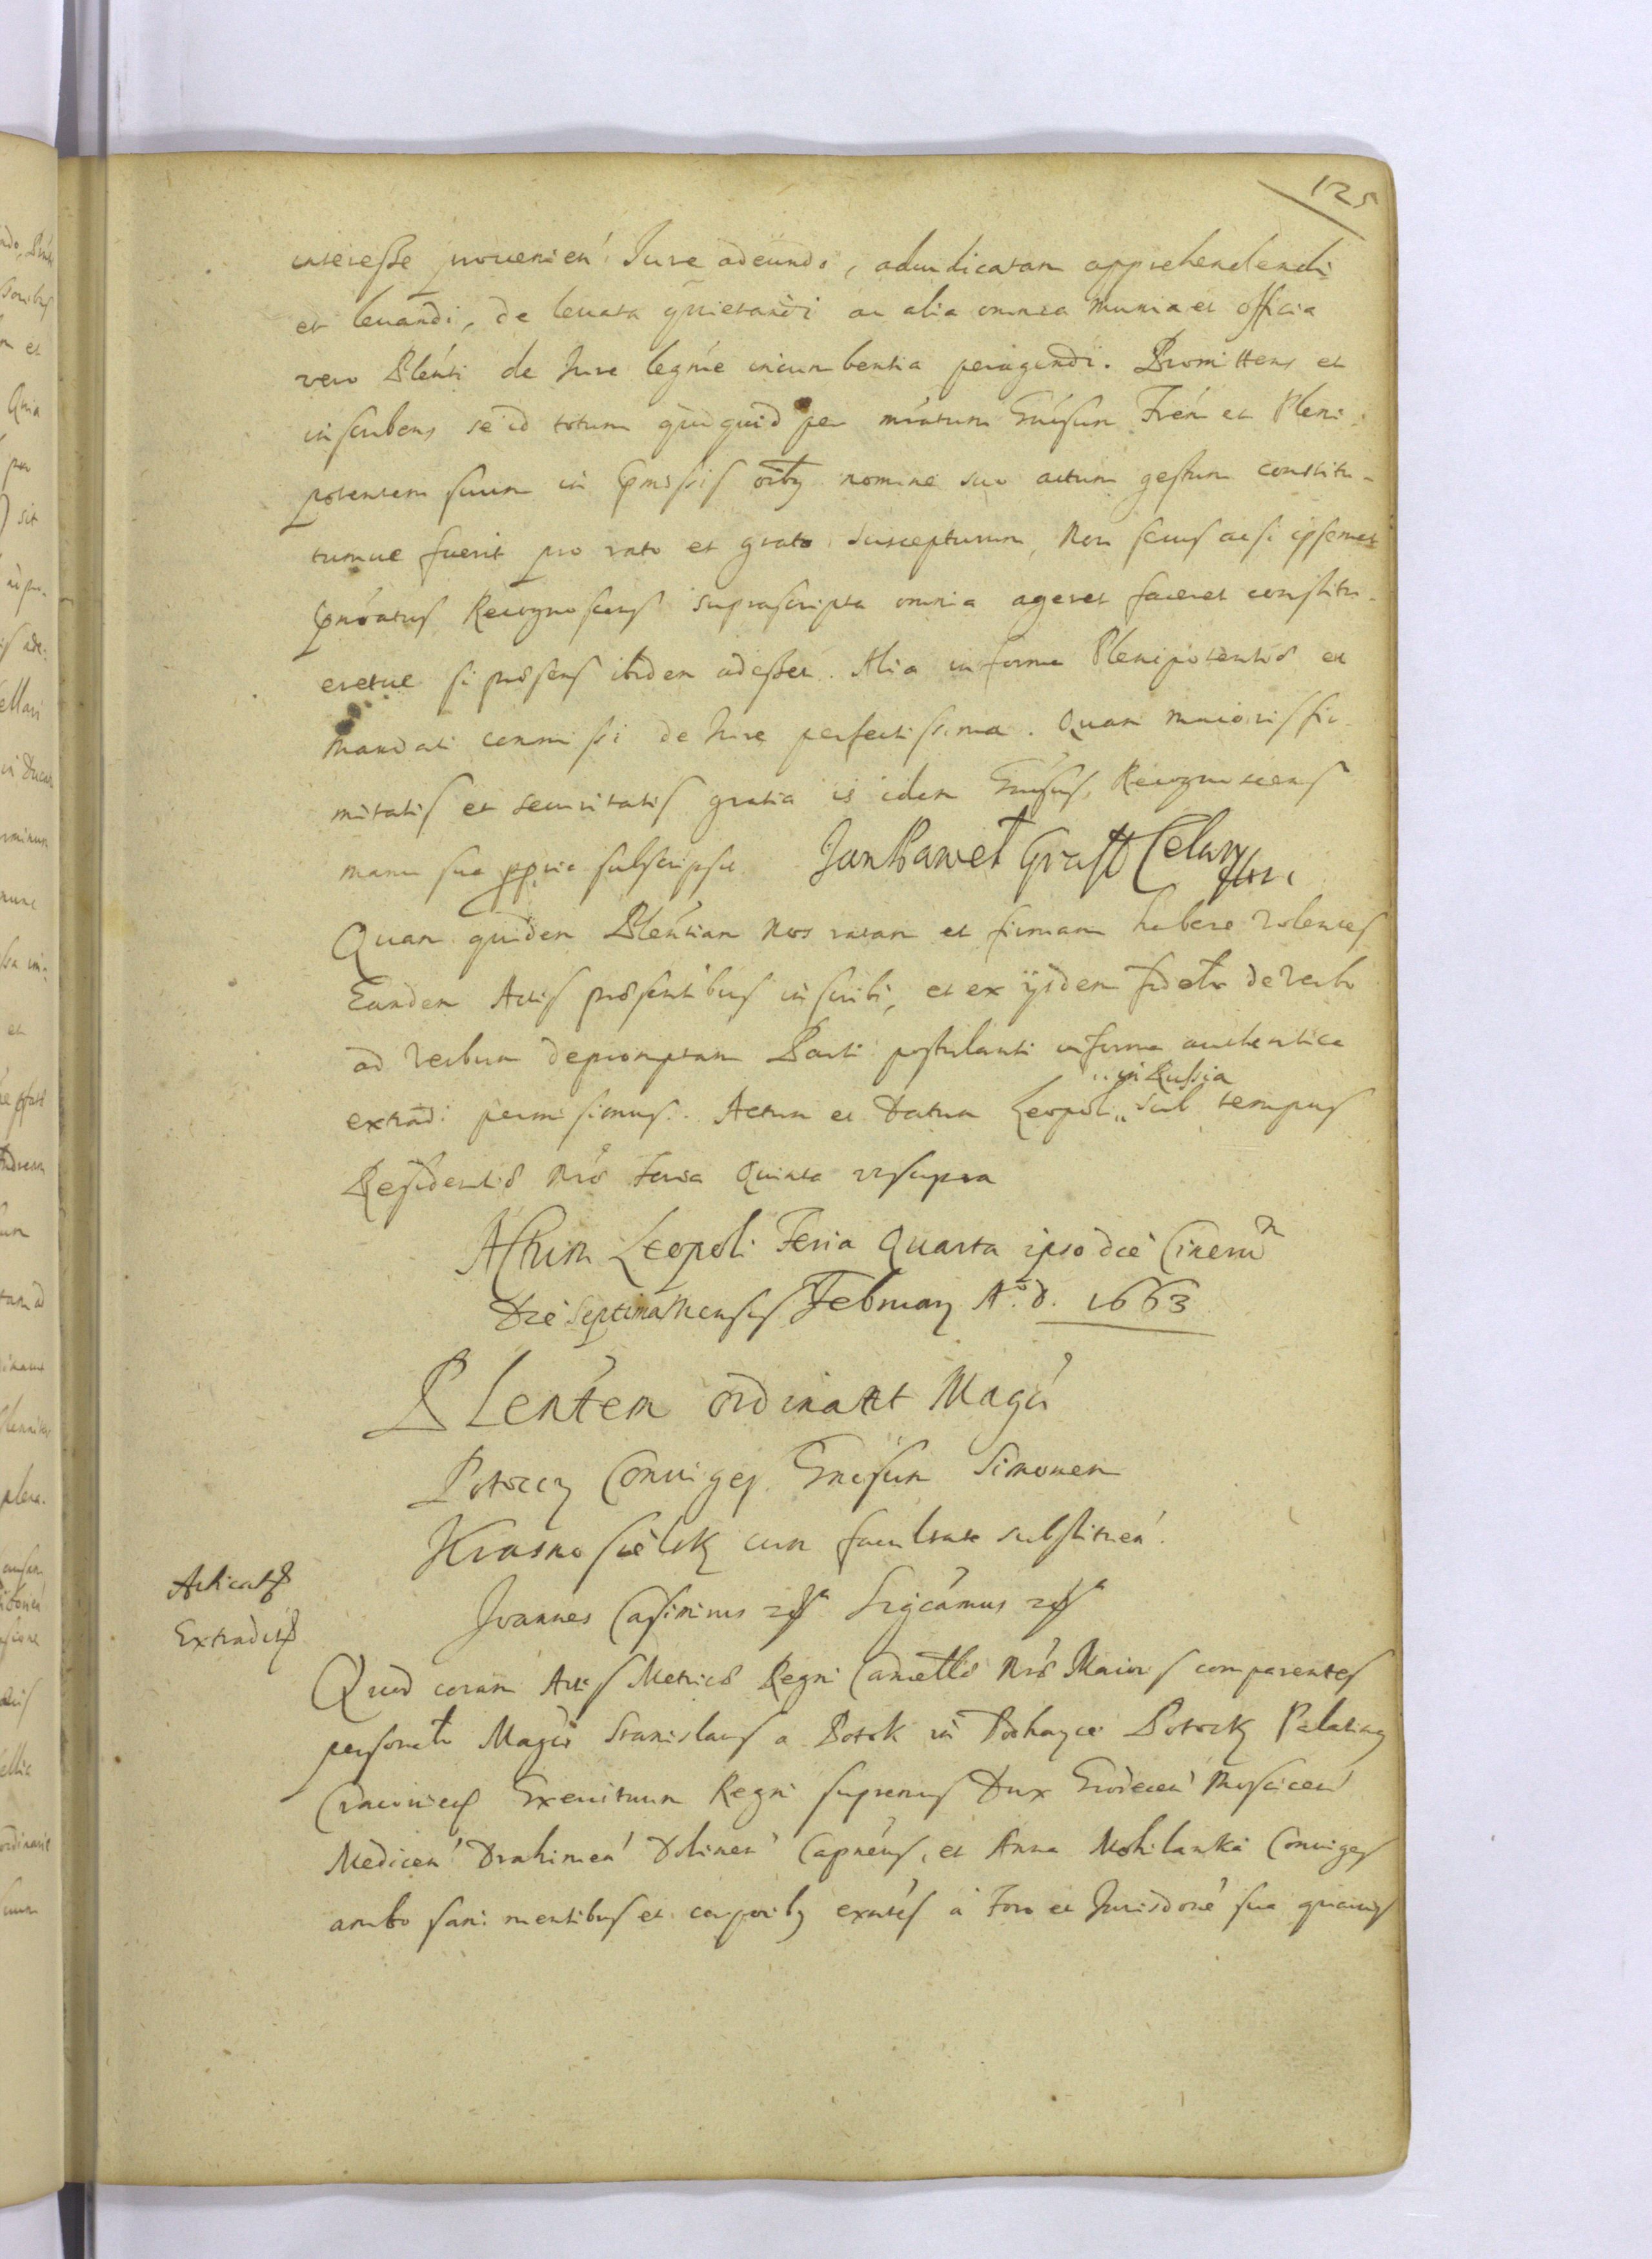 125
interesse prouenien' Jure adeundi, adiudicatam apprehendendi
et leuandi, de leuata quietandi ac alia omnia munia et officia
vero Plenti de Jure legme incumbentia peragendi. Promittens et
inscribens se id totum quidquid per mratum Gnsum Fren et Pleni-
potentem suum in pmissis oibus nomine suo actum gestum constitu-
tumue fuerit pro rato et grato suscepturum, Non secus ac si ipsemet
pnoatus Recognoscens suprascripta omnia ageret faceret constitu-
eretue si præsens ibidem adesset. Alia in forma Plenipotentiæ et
mandati commissi de Jure perfectissima. Quam maioris fir-
mitatis et securitatis gratia is idem Gnsus Recognoscens
manu sua ppria subscripsit. Jan Paweł Graff Celary
Quam quidem Plentiam Nos ratam et firmam habere volentes
Eandem Actis præsentibus inscribi, et ex ijsdem fidelr de verbo
ad verbum depromptam Parti postulanti in forma authentica
in Russia
extradi permisimus. Actum et Datum Leopoli sub tempus
Residentiæ Nræ Feria Quinta vt supra
Actum Leopoli Feria Quarta ipso die Cinerum
Die septima Mensis February A. D. 1663
PLentem ordinant Magci
Potoccy Coniuges Gnsum Simonem
Krasnosielsky cum facultate substituen'.
Joannes Casimirus Sigcamus
Acticat
Extradit
Quod coram Actis Metricæ Regni Cancellæ Nræ Maioris comparentes
personalr Magcus Stanislaus a Potok in Podhayce Potocky Palatinus
Cracouien Exercituum Regni supremus Dux Grodecen' Moscicen'
Medicen' Drahimen' Dolinen' Capneus, et Anna Mohilanka Coniuges
ambo sani mentibus et corporibus exntes à Foro et Jurisdone sua quauis